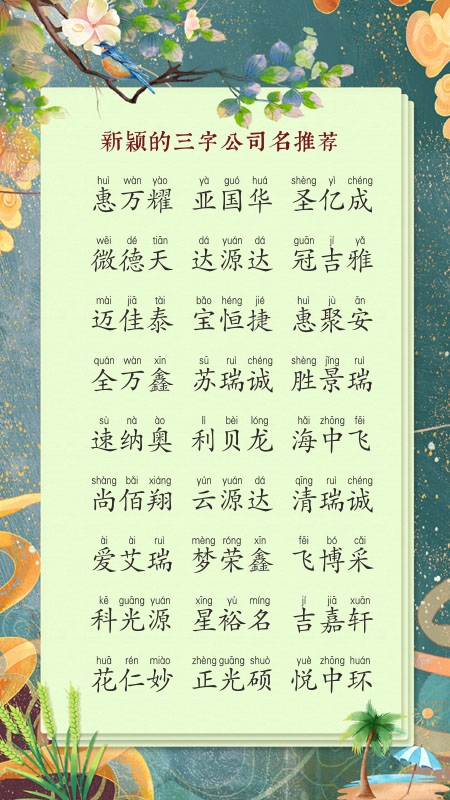 新颖的三字公司名推荐
huì wàn yào yà guó huá shèng yì chéng
惠万耀 亚国华 圣亿成
wēi dé tiān dá yuán dá guān jí yǎ
微德天 达源达 冠吉雅
mài jiā tài bǎo héng jié huì jù ān
迈佳泰 宝恒捷 惠聚安
quán wàn xīn sū ruì chéng shèng jǐng ruì
全万鑫 苏瑞诚 胜景瑞
sù nà ào lì bèi lóng hǎi zhōng fēi
速纳奥 利贝龙 海中飞
shàng bǎi xiáng yún yuán dá qīng ruì chéng
尚佰翔 云源达 清瑞诚
ài ài ruì mèng róng xīn fēi bó cǎi
爱艾瑞 梦荣鑫 飞博采
kē guāng yuán xīng yù míng jí jiā xuān
科光源 星裕名 吉嘉轩
huā rén miào zhèng guāng shuò yuè zhōng huán
花仁妙 正光硕 悦中环